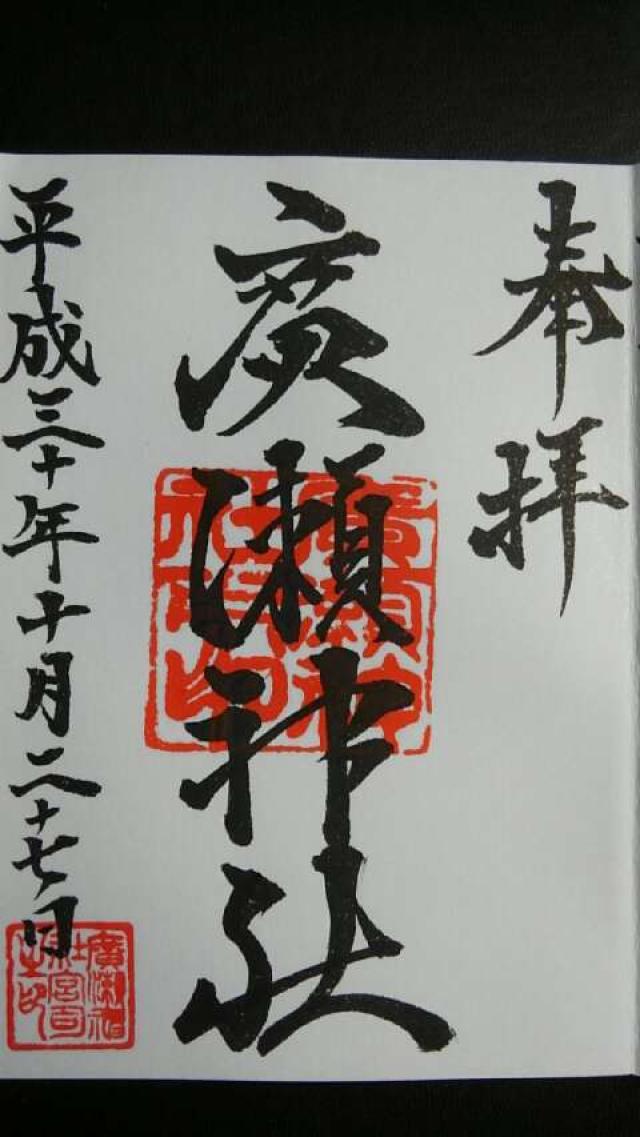 奉拝
廣瀬神社
平成三十年十月二十七日
廣瀬神社宮司之印